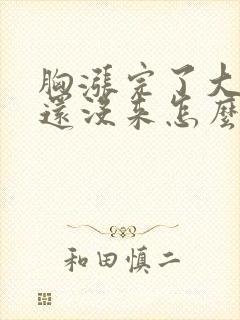 胸漲完了大
還沒來怎麼
和田慎二